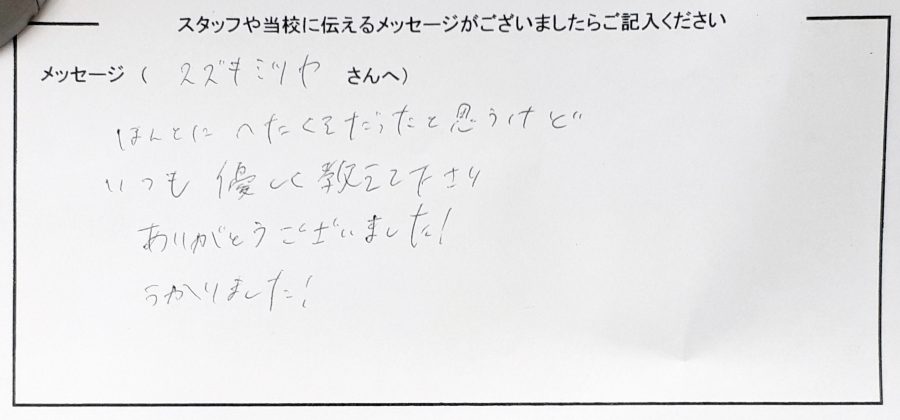 スタッフや当校に伝えるメッセージがございましたらご記入ください
メッセージ ( スズキミツヤ さんへ)
ほんとに へたくそだったと思うけど
いつも 優しく教えて下さり
ありがとうございました!
うかりました!